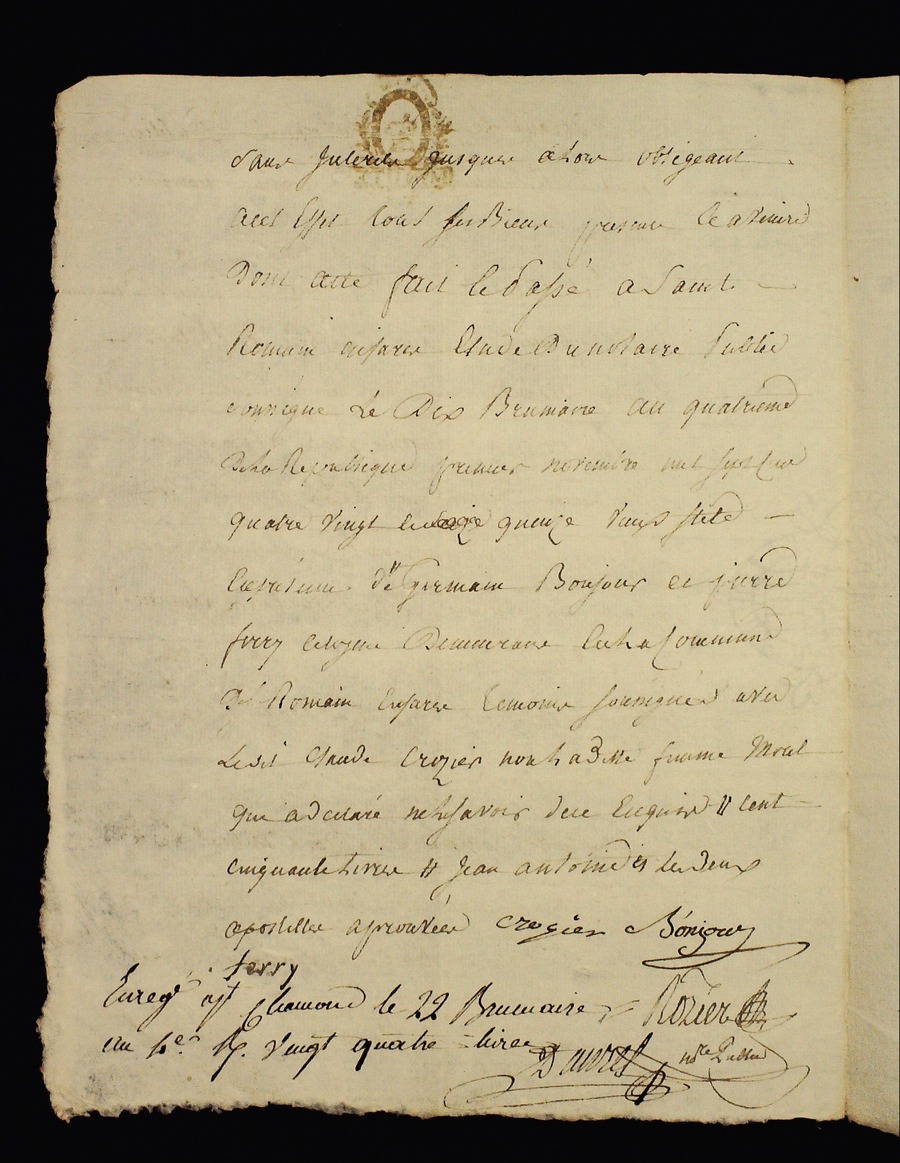 sans interets jusques alors obligeant
acet effet tous ses Biens presens et avenird
Dont acte fait et Passé a Saint
Romain enjarez Etude Du notaire Public
soussigne Le Dix Brumaire an quatrieme
De la Republique premier novembre mil sept Cen
quatre vingt quinze vieux stile
En presence d'' germain Bonjour et pierre
ferry citoyens Demeurans en la Commune
De St Romain Enjarez temoins soussignés avec
Ledit Claude Crozier non ladte femme Moul
qui a declaré ne le savoir de ce Enquise // Cent
cinquante livres // Jean antoine les deux
apostilles aprouvées crozier Bonjour
ferry
Enregé a st Chamond le 22 Brumaire Rozier
an 4e R. vingt quatre livres Dauvret nore Public